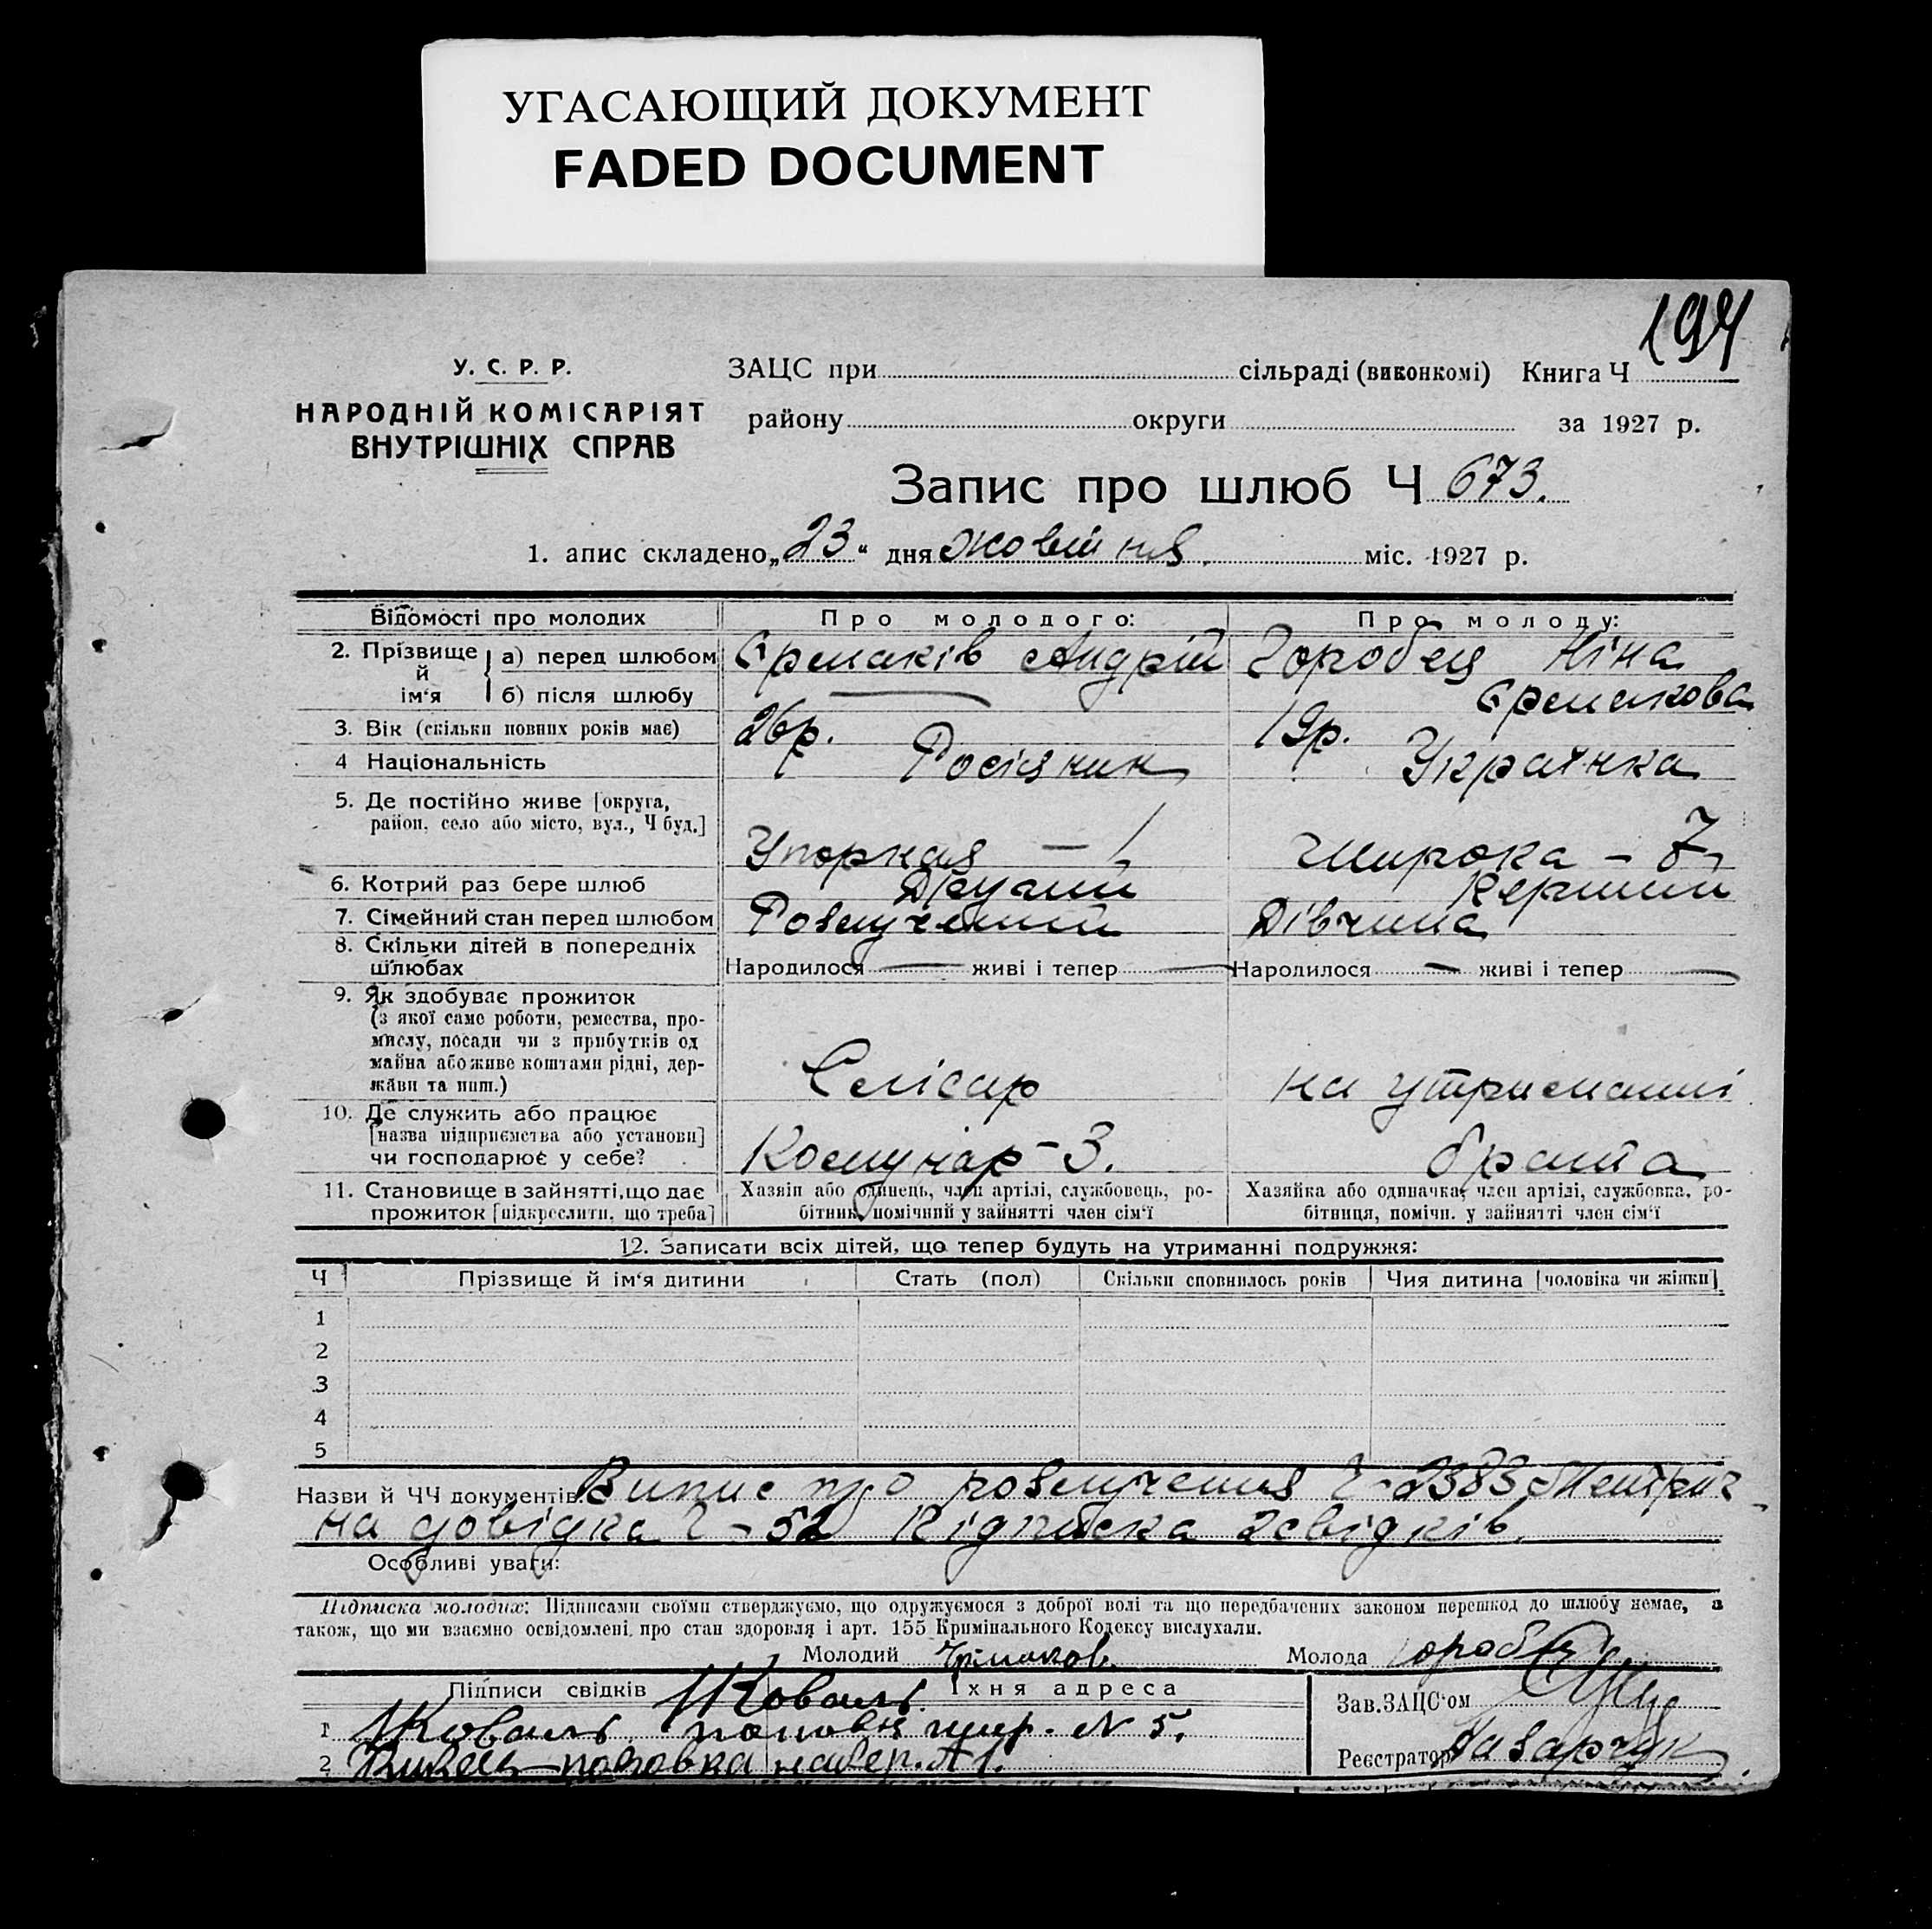 УГАСАЮЩИЙ ДОКУМЕНТ
FADED DOCUMENT
194
У. С. Р. Р.
НАРОДНІЙ КОМІСАРІЯТ
ВНУТРІШНІХ СПРАВ
ЗАЦС при сільраді (виконкомі) Книга Ч
району округи за 1927 р.
Запис про шлюб Ч 673.
1. апис складено „23“ дня жовтня міс. 1927 р.
Відомості про молодих Про молодого: Про молоду:
2. Прізвище й ім‘я а) перед шлюбом Єрмаків Андрій Горобец Ніна
б) після шлюбу Єрмакова
3. Вік (скільки повних років має) 26р. 19р.
4 Національність Росіянин Українка
5. Де постійно живе [округа,
район, село або місто, вул., Ч буд.] Упорная – 1 Широка – 7
6. Котрий раз бере шлюб Другий Перший
7. Сімейний стан перед шлюбом Розлучений Дівчина
8. Скільки дітей в попередніх
шлюбах Народилося — живі і тепер — Народилося — живі і тепер —
9. Як здобуває прожиток
(з якої саме роботи, ремества, про-
мислу, посади чи з прибутків од
майна або живе коштами рідні, дер-
жави та инш.) Слісар на утриманні
10. Де служить або працює
[назва підприємства або установи]
чи господарює у себе? Комунар – 3. брата
11. Становище в зайнятті, що дає
прожиток [підкреслити, що треба]
Хазяін або одинець, член артілі, службовець, ро-
бітник, помічний у зайнятті член сім‘ї
Хазяйка або одиначка, член артілі, службовка, ро-
бітниця, помічн. у зайнятті член сім‘ї
12. Записати всіх дітей, що тепер будуть на утриманні подружжя:
Ч Прізвище й ім‘я дитини Стать (пол) Скільки сповнилось років Чия дитина [чоловіка чи жінки]
1
2
3
4
5
Назви й ЧЧ документів: Випис про розлучення Ч-2383 Метрич-
на довідка Ч – 52 Підписка 2 свідків.
Особливі уваги:
Підписка молодих: Підписами своїми стверджуємо, що одружуємося з доброї волі та що передбачених законом перешкод до шлюбу немає, а
також, що ми взаємно освідомлені про стан здоровля і арт. 155 Кримінального Кодексу вислухали.
Молодий Ермаков Молода Горобец
Підписи свідків Коваль Їхня адреса
Зав.ЗАЦС‘ом
1 Коваль N 5.
Реєстратор Назарчук
2